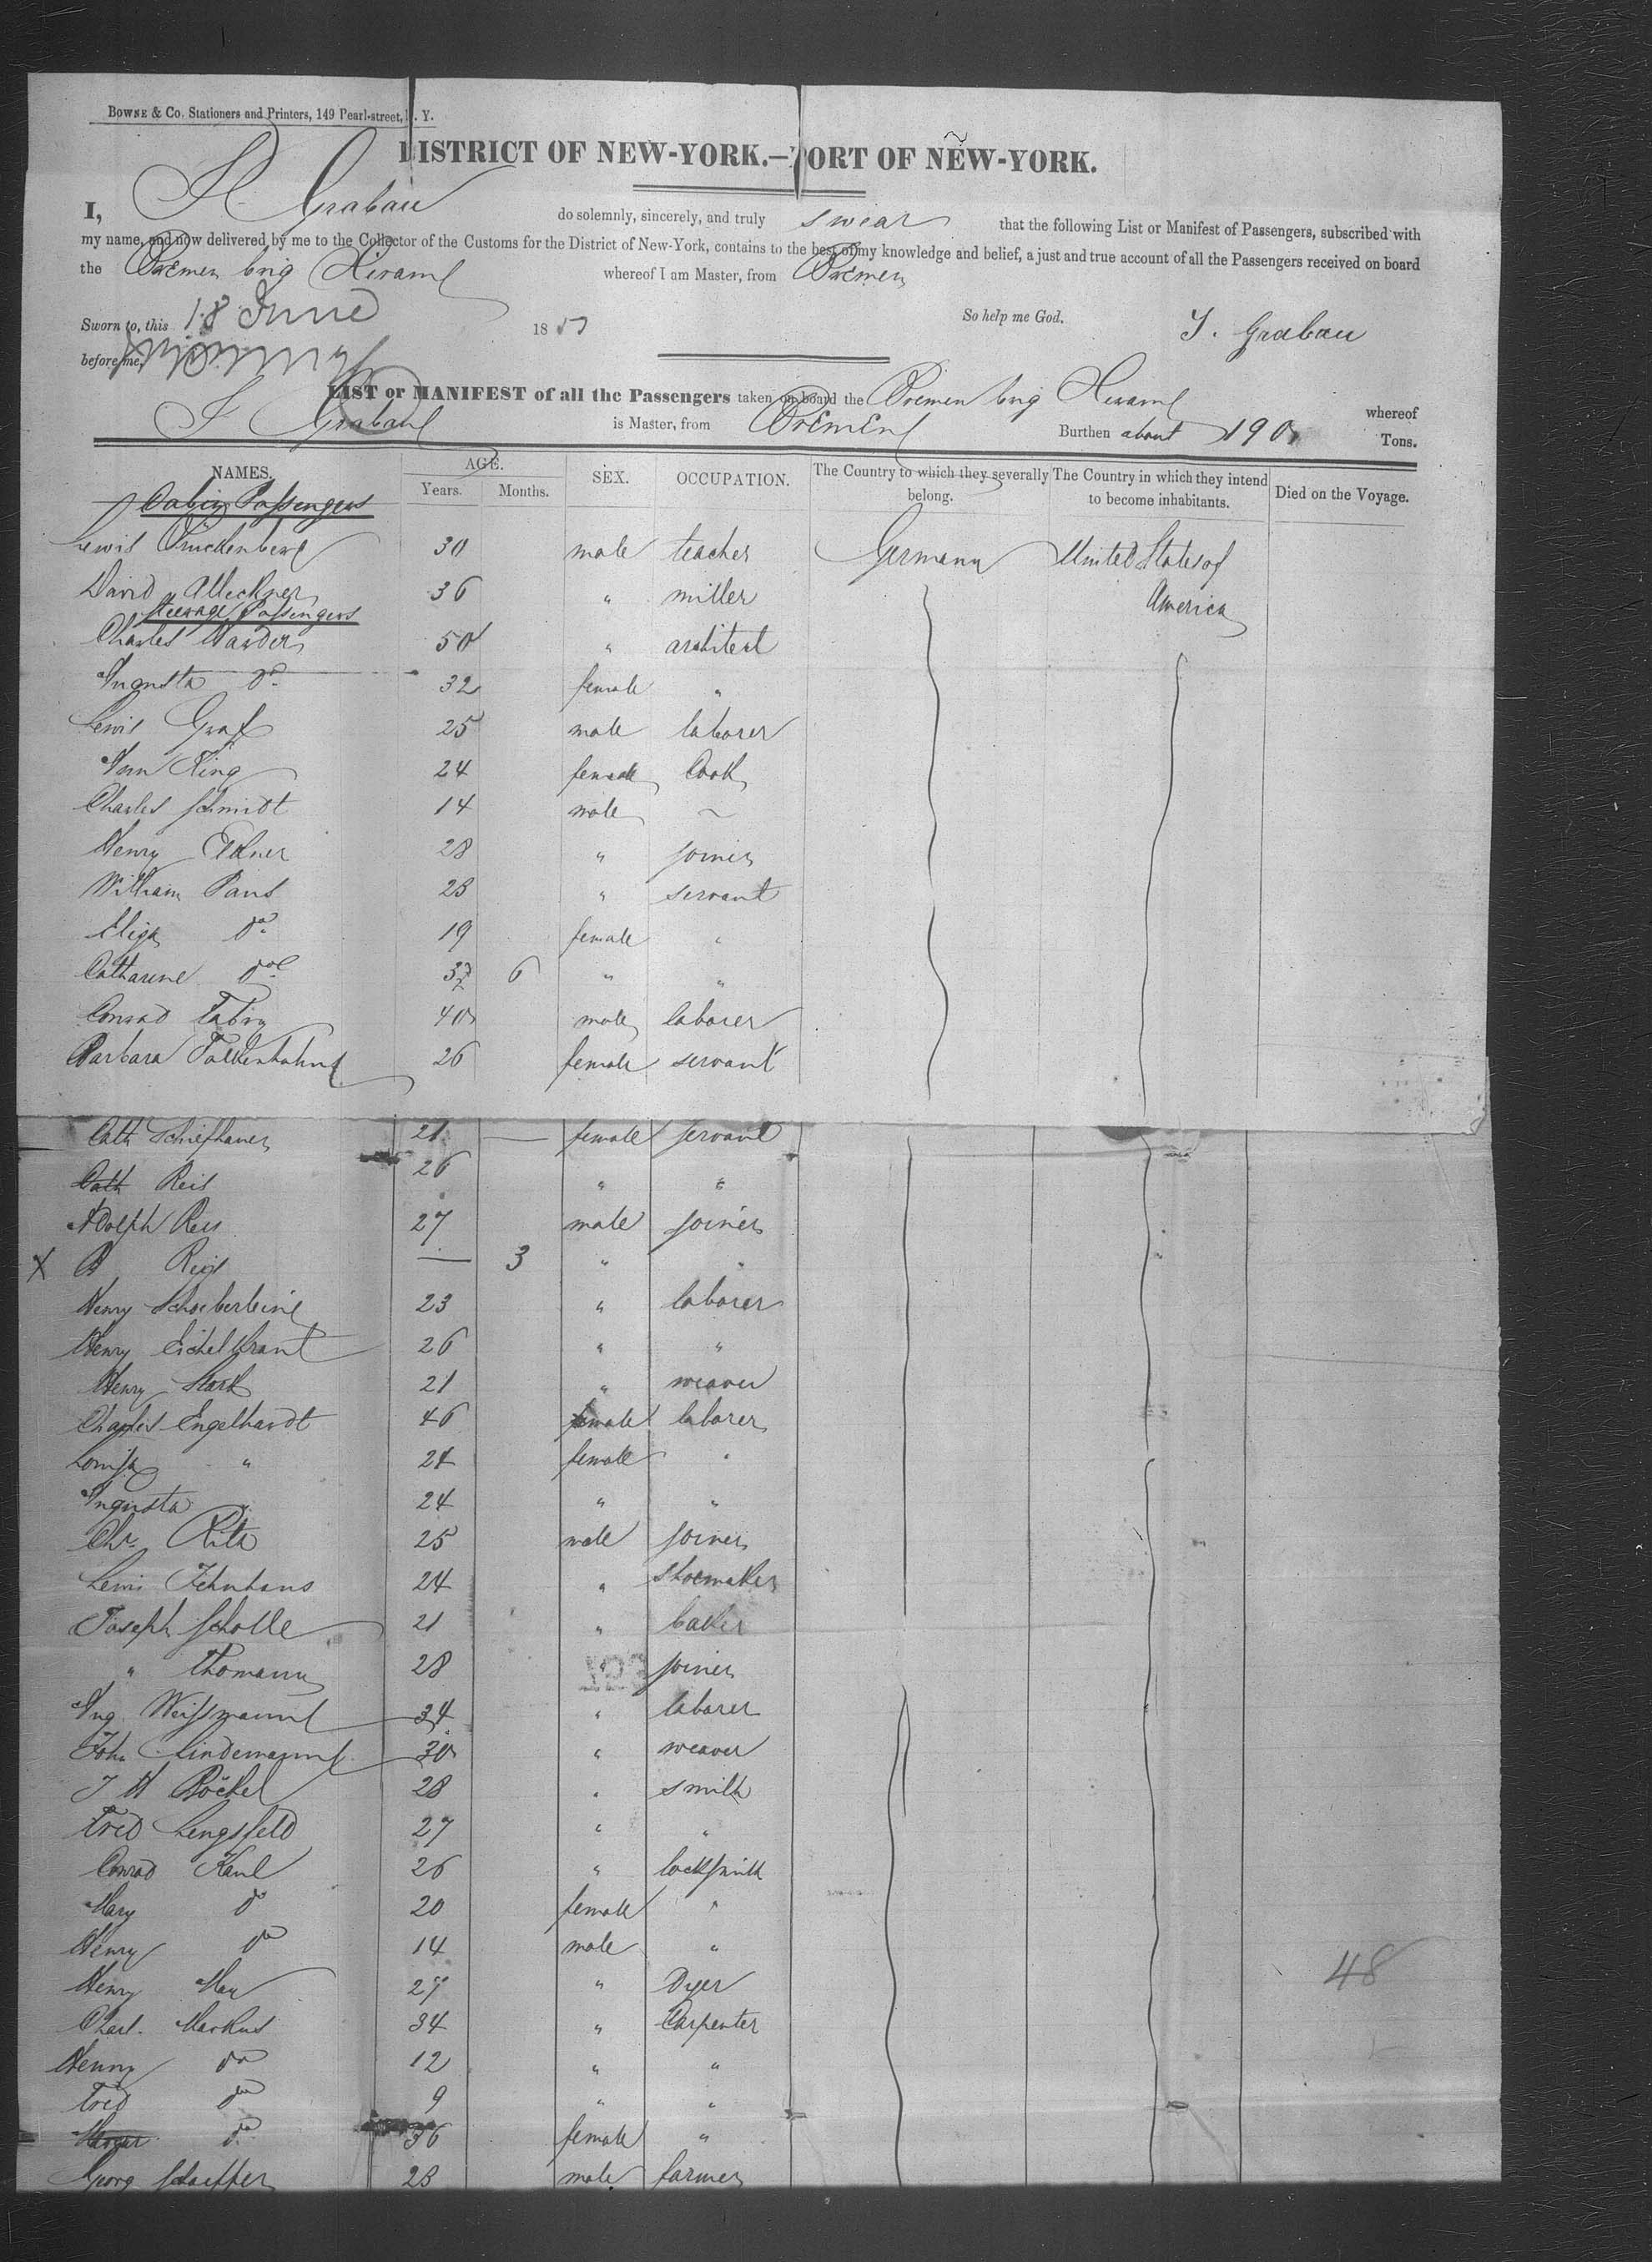 BOWNE & Co. Stationers and Printers, 149 Pearl-street, N. Y.
DISTRICT OF NEW-YORK.—PORT OF NEW-YORK.
I, Grabau do solemnly, sincerely, and truly swear that the following List or Manifest of Passengers, subscribed with
my name, and now delivered by me to the Collector of the Customs for the District of New-York, contains to the best of my knowledge and belief, a just and true account of all the Passengers received on board
the Bremen brig Hiram whereof I am Master, from Bremen
Sworn to, this 18 June 18 So help me God. Grabau
before me,
LIST or MANIFEST of all the Passengers taken on board the Bremen brig Hiram whereof
Grabau is Master, from Bremen Burthen about 190 Tons.
NAMES. AGE. Years. Months. SEX. OCCUPATION. The Country to which they severally belong. The Country in which they intend to become inhabitants. Died on the Voyage.
Cabin Passengers
Lewis 30 male teacher Germany United States of
David 36 " miller America
Steerage Passengers
Charles 50 " architect
Augusta do 32 female "
Lewis Graf 25 male laborer
Ann King 24 female Cook
Charles Schmidt 14 male ~
Henry 28 " joiner
William 23 " servant
Eliza do 19 female "
Catharine do 6 " "
Conrad 40 male laborer
Barbara 26 female servant
Cath 21 — female servant
Cath Reis 26 " "
Adolph Reis 27 male joiner
X Reis — 3 " "
Henry Schoberlein 23 " laborer
Henry Eichelkraut 26 " "
Henry Stark 21 " weaver
Charles Engelhardt 46 male laborer
Louisa " 24 female "
Augusta " 24 " "
Chr. 25 male joiner
Lewis 24 " shoemaker
Joseph Scholle 21 " baker
" Thomann 28 " joiner
Aug Weissmann 34 " laborer
John Lindemann 30 " weaver
J H Böckel 28 " smith
Fred Lengsfeld 27 " "
Conrad Kaul 26 " locksmith
Mary do 20 female "
Henry do 14 male "
Henry May 27 " Dyer
Charl. Markus 34 " Carpenter
Henry do 12 " "
Fred do 9 " "
do 36 female "
Georg Schaeffer 23 male farmer
48